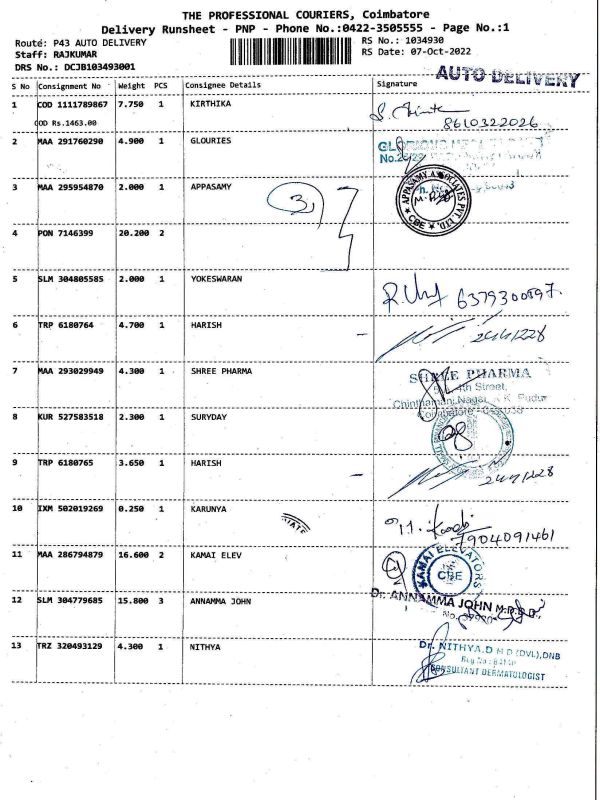 THE PROFESSIONAL COURIERS, Coimbatore
Delivery Runsheet - PNP - Phone No.:0422-3505555 - Page No.:1
Route: P43 AUTO DELIVERY RS No.: 1034930
Staff: RAJKUMAR RS Date: 07-Oct-2022
DRS No.: DCJB103493001
AUTO DELIVERY
S No Consignment No Weight PCS Consignee Details Signature
1 COD 1111789867 7.750 1 KIRTHIKA
COD Rs.1463.00 8610322026
2 MAA 291760290 4.900 1 GLOURIES
3 MAA 295954870 2.000 1 APPASAMY 3 APPASAMY ASSOCIATES PVT. LTD. CBE
4 PON 7146399 20.200 2
5 SLM 304805585 2.000 1 YOKESWARAN
6 TRP 6180764 4.700 1 HARISH
7 MAA 293029949 4.300 1 SHREE PHARMA SHREE PHARMA
4th Street,
Chinthamani Nagar, K.K. Pudur
Coimbatore
8 KUR 527583518 2.300 1 SURYDAY
9 TRP 6180765 3.650 1 HARISH
10 IXM 502019269 0.250 1 KARUNYA
7904091461
11 MAA 286794879 16.600 2 KAMAI ELEV KAMAI ELEVATORS CBE
12 SLM 304779685 15.800 3 ANNAMMA JOHN Dr. ANNAMMA JOHN
13 TRZ 320493129 4.300 1 NITHYA Dr. NITHYA.D H D (DVL),DNB
CONSULTANT DERMATOLOGIST